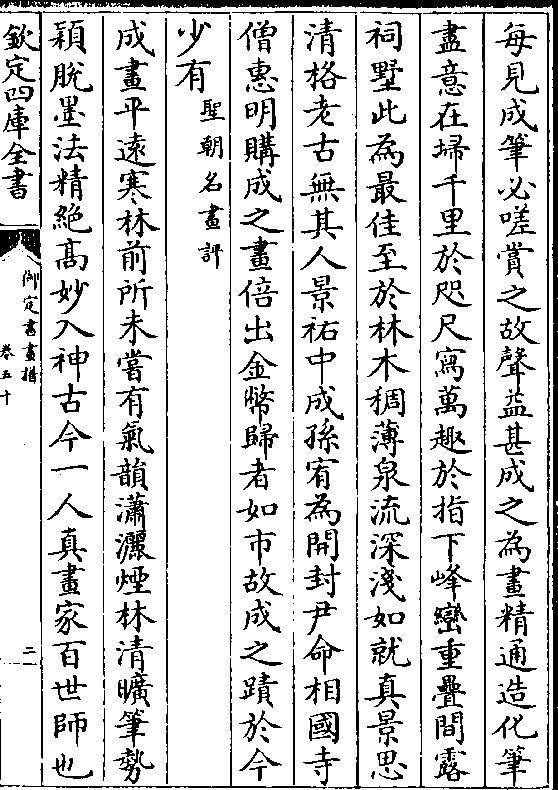 每見成筆必嗟賞之故聲益甚成之為畫精通造化筆
盡意在埽千里於咫尺寫萬趣於指下峰巒重疊間露
祠墅此為最佳至於林木稠薄泉流深淺如就真景思
清格老古無其人景祐中成孫宥為開封尹命相國寺
僧惠明購成之畫倍出金幣歸者如市故成之蹟於今
少有聖朝名畫評
成畫平遠寒林前所未嘗有氣韻瀟灑煙林清曠筆勢
穎脫墨法精絕高妙入神古今一人真畫家百世師也
欽定四庫全書
御定書畫譜
卷五十
二